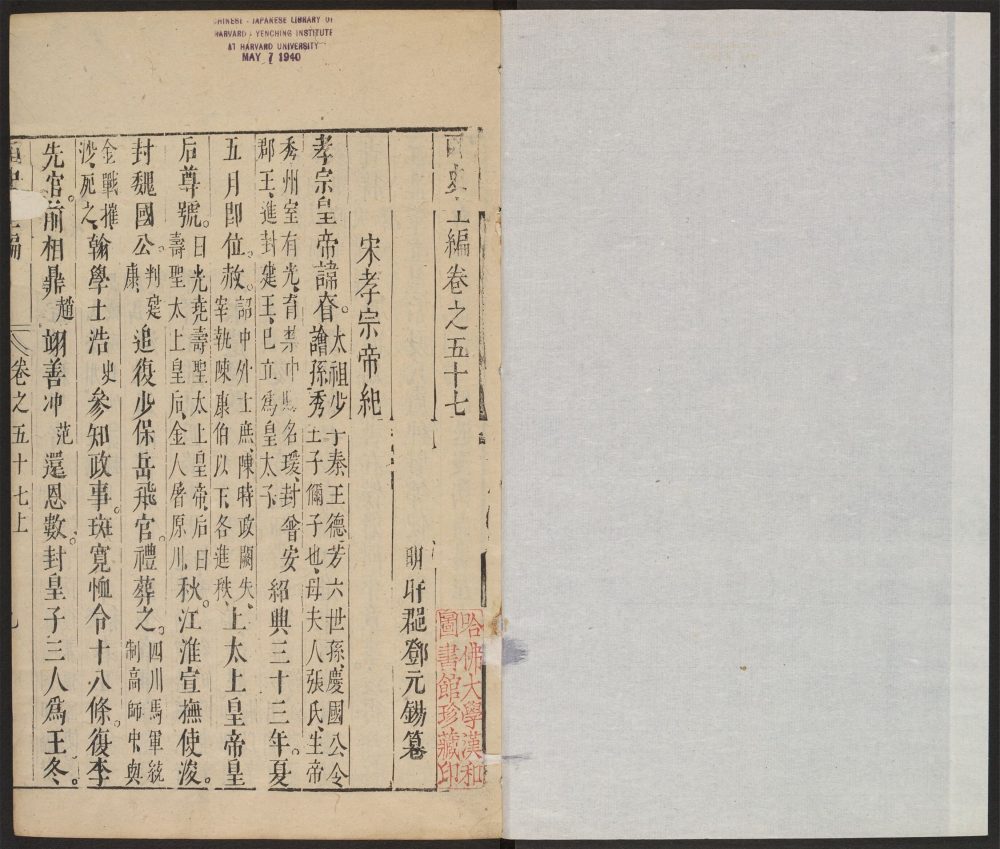 CHINESE - JAPANESE LIBRARY OF
HARVARD - YENCHING INSTITUTE
AT HARVARD UNIVERSITY
MAY 7 1940
上編卷之五十七
明旴郡鄧元錫纂
哈佛大學漢和
圖書館珍藏印
宋孝宗帝紀
孝宗皇帝諱眘。太祖少子秦王德芳六世孫、慶國公令
譮孫、秀王子偁子也、母夫人張氏、生帝
秀州室有光、育禁中、賜名瑗、封普安
郡王、進封建王、已立為皇太子、紹興三十三年。夏
五月即位。赦。詔中外士庶、陳時政闕失、
宰執陳康伯以下、各進秩、上太上皇帝皇
后尊號。曰光堯壽聖太上皇帝、后曰
壽聖太上皇后、金人屠原川、秋。江淮宣撫使浚。
封魏國公。判建
康、追復少保岳飛官。禮葬之。四川馬軍統
制高師中與
金戰摧
沙、死之、翰學士浩史參知政事。班寬恤令十八條。復李
先官。前相鼎趙翊善冲范還恩數。封皇子三人為王。冬。
卷之五十七上